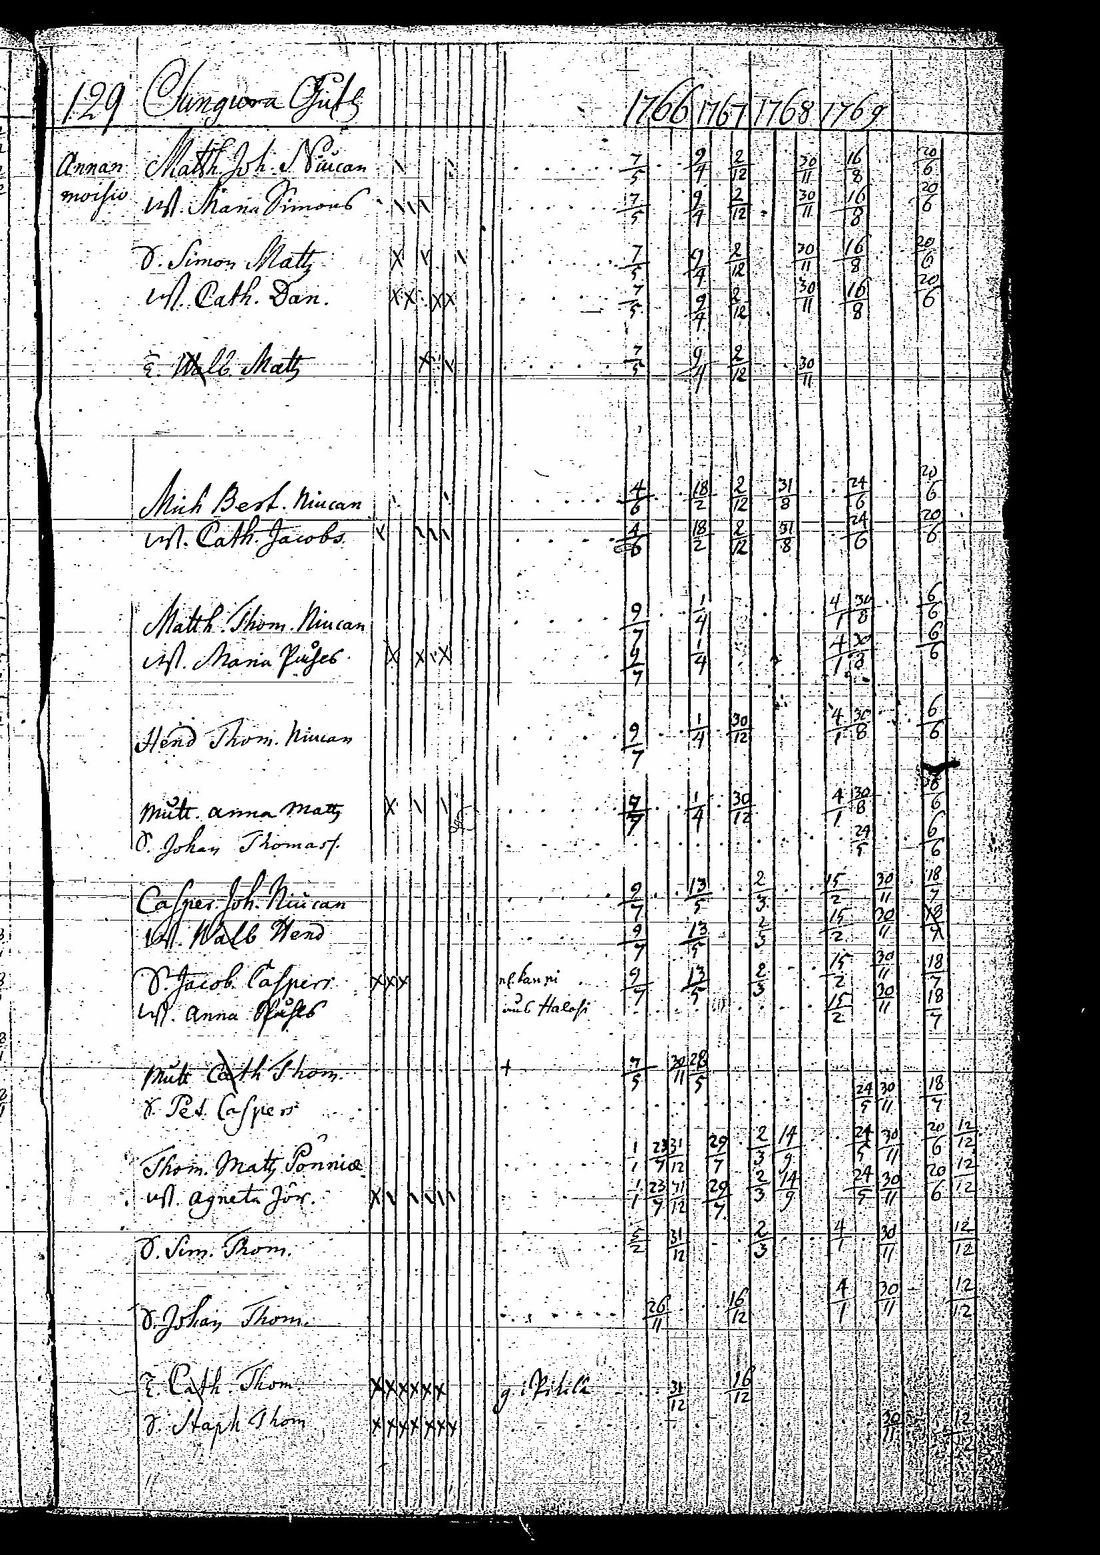 129 1766 1767 1768 1769
Annan Matth. Joh. Niucan 7/5 9/4 2/12 30/11 16/8 20/6
moisio Ust. Maria Simons 7/5 9/4 2/12 30/11 16/8 20/6
S. Simon Matts 7/5 9/4 2/12 30/11 16/8 20/6
Ust. Cath. Dan. 7/5 9/4 2/12 30/11 16/8 20/6
Walb. Matts 7/5 9/4 2/12 30/11
Mich Bert. Niucan 4/6 18/2 2/12 31/8 24/6 20/6
Ust. Cath. Jacobs 4/6 18/2 2/12 31/8 24/6 20/6
Matth. Thom. Niucan 9/7 1/4 4/1 30/8 6/6
Ust. Maria 9/7 1/4 4/1 30/8 6/6
Hend Thom. Niucan 9/7 1/4 30/12 4/1 30/8 6/6
Mutt. Anna Matts 1/4 30/12 4/1 30/8
S. Johan Thomass. 24/5 6/6
Casper Joh. Niucan 9/7 13/5 2/3 15/2 30/11 18/7
Ust. Walb Hend 9/7 13/5 2/3 15/2 30/11 18/7
S. Jacob Caspers 9/7 13/5 2/3 15/2 30/11 18/7
Ust. Anna 15/2 30/11 18/7
Mutt Cath Thom. + 7/5 30/11 28/5
S. Pet. Caspers 24/5 30/11 18/7
Thom. Matts Ponniæ 1/1 23/9 31/12 29/7 2/3 14/9 24/5 30/11 20/6 12/12
Ust. Agneta Jör. 1/1 23/9 31/12 29/7 2/3 14/9 24/5 30/11 20/6 12/12
S. Sim. Thom. 5/2 31/12 2/3 4/1 30/11 12/12
S. Johan Thom. 26/11 16/12 4/1 30/11 12/12
Cath. Thom 31/12 16/12
S. Staph Thom 30/11 12/12